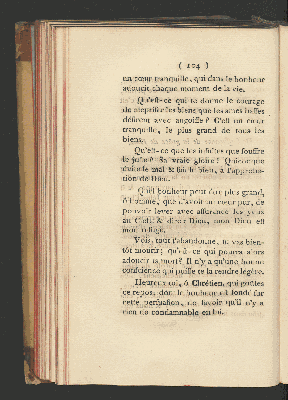 ( 104 )
un cœur tranquille, qui dans le bonheur
adoucit chaque moment de la vie.
Qu'est-ce qui te donne le courage
de mépriser les biens que les ames basses
désirent avec angoisse ? C'est un cœur
tranquille, le plus grand de tous les
biens.
Qu'est-ce que les insultes que souffre
le juste ? Sa vraie gloire ! Quiconque
évite le mal & fait le bien, a l'approba-
tion de Dieu.
Quel bonheur peut être plus grand,
ô homme, que d'avoir un cœur pur, de
pouvoir lever avec assurance les yeux
au Ciel & dire: Dieu, mon Dieu est
mon refuge.
Vois, tout t'abandonne, tu vas bien-
tôt mourir; qu'est-ce qui pourra alors
adoucir ta mort? Il n'y a qu'une bonne
conscience qui puisse te la rendre légère.
Heureux toi, ô Chrétien, qui goûtes
ce repos, dont le bonheur est fondé sur
cette persuasion, de savoir qu'il n'y a
rien de condamnable en lui.